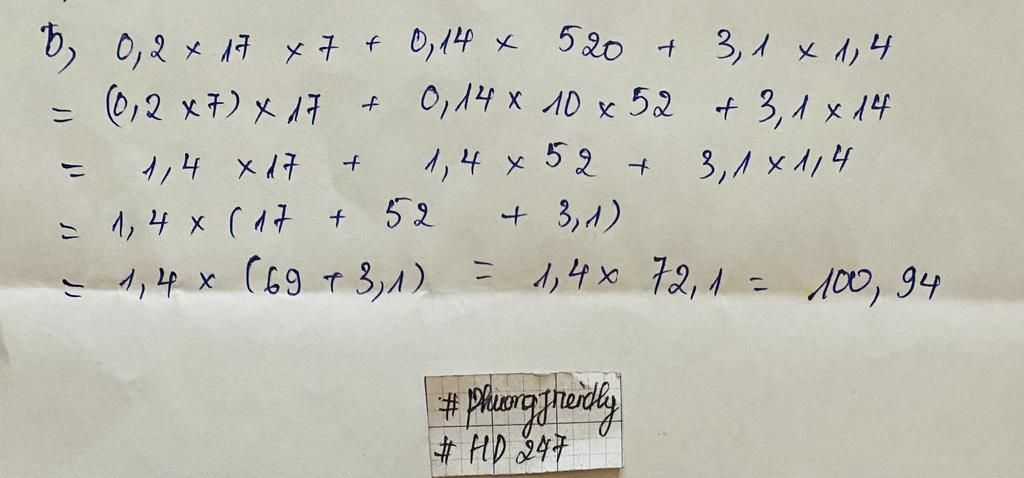 b, 0,2 × 17 × 7 + 0,14 × 520 + 3,1 × 1,4
= (0,2 × 7) × 17 + 0,14 × 10 × 52 + 3,1 × 14
= 1,4 × 17 + 1,4 × 52 + 3,1 × 1,4
= 1,4 × (17 + 52 + 3,1)
= 1,4 × (69 + 3,1) = 1,4 × 72,1 = 100,94
# Phuongfreidly
# HD 247